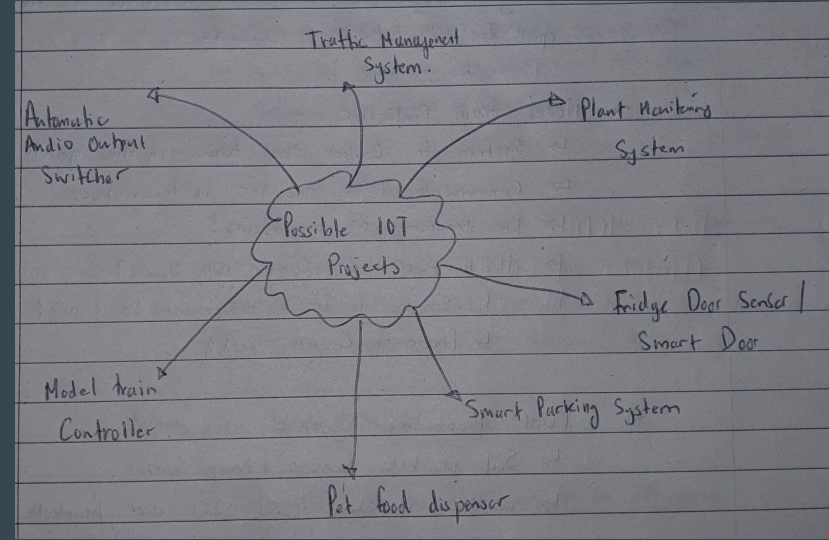 Traffic Management
System.
Automatic
Audio Output
Switcher
Plant Monitering
System
Possible IOT
Projects
Fridge Door Sensor /
Smart Door
Model train
Controller
Smart Parking System
Pet food dispensor